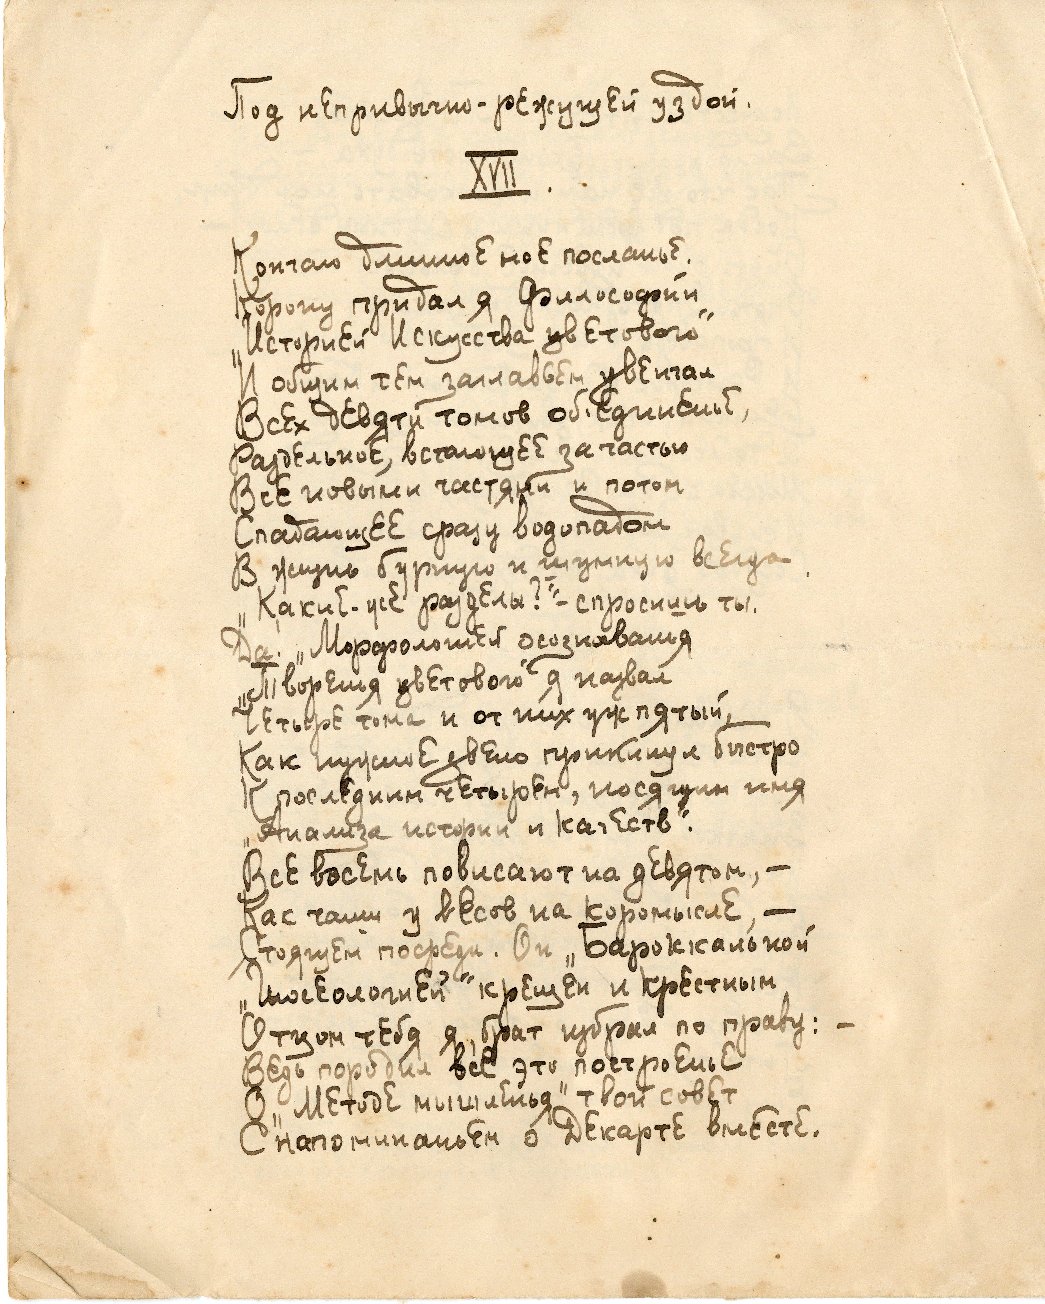 Под непривычно-режущей уздой.
XVII.
Кончаю длинное мое посланье.
Корону придал я Философии
„Историей Искусства цветового"
И общим тем заглавьем увенчал
Всех девяти томов об'единенье,
Раздельное, встающее за частью
Все новыми частями и потом
Спадающее сразу водопадом
В жизнь бурную и шумную всегда.
„Какие-же разделы?" – спросишь ты.
Да. „Морфологией осознаванья
„Творенья цветового" я назвал
Четыре тома и от них уж пятый,
Как нужное звено прикинул быстро
К последним четырем, носящим имя
„Анализа истории и качеств".
Все восемь повисают на девятом, –
Как чаши у весов на коромысле, –
Стоящем посреди. Он „Бароккальной
„Гносеологией" крещен и крестным
Отцом тебя я, брат избрал по праву: –
Ведь породил все это построенье
О „Методе мышленья" твой совет
С напоминаньем о Декарте вместе.